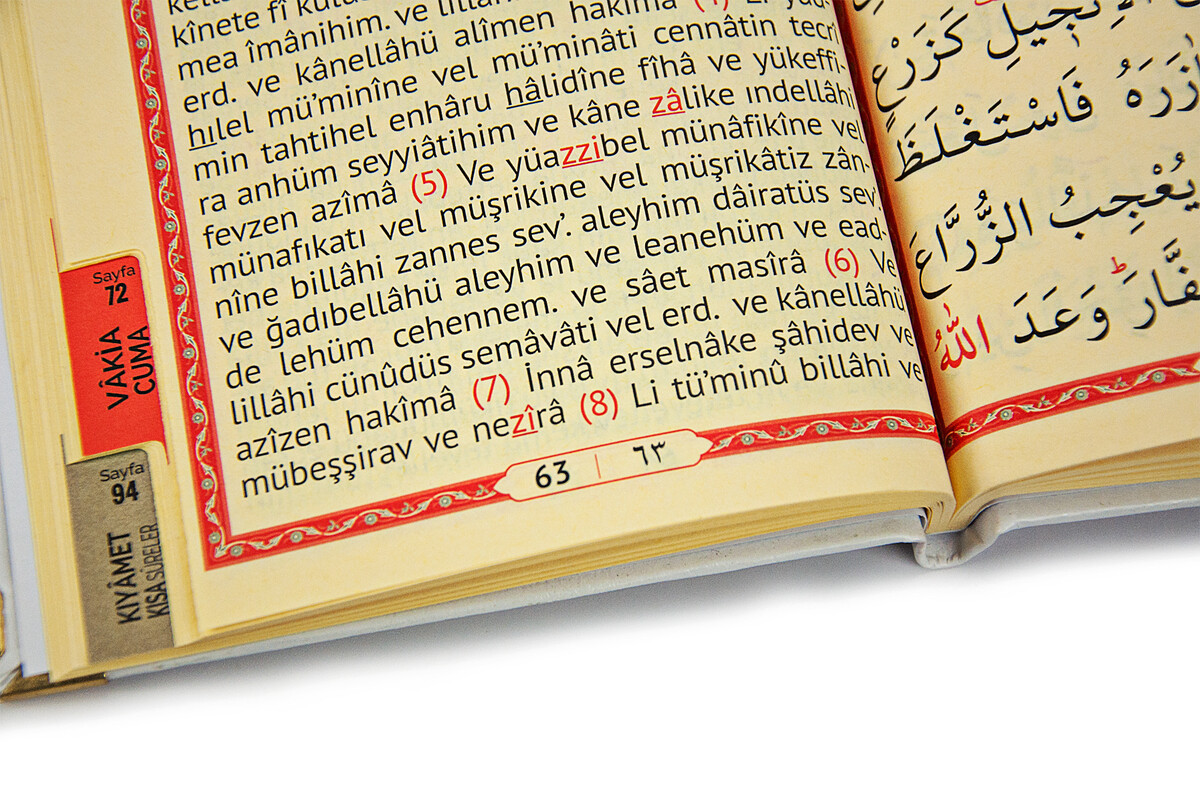 kînete fî kulû
mea îmânihim. ve lillâh
erd. ve kânellâhü alîmen hakîmâ (4) Li yüd
hılel mü’minîne vel mü’minâti cennâtin tecrî
min tahtihel enhâru hâlidîne fîhâ ve yükeffi-
ra anhüm seyyiâtihim ve kâne zâlike ındellâhi
fevzen azîmâ (5) Ve yüazzibel münâfikîne vel
münafıkatı vel müşrikine vel müşrikâtiz zân-
nîne billâhi zannes sev’. aleyhim dâiratüs sev’.
ve ğadıbellâhü aleyhim ve leanehüm ve ead-
de lehüm cehennem. ve sâet masîrâ (6) Ve
lillâhi cünûdüs semâvâti vel erd. ve kânellâhü
azîzen hakîmâ (7) İnnâ erselnâke şâhidev ve
mübeşşirav ve nezîrâ (8) Li tü’minû billâhi ve
63 | ٦٣
Sayfa
72
VÂKİA
CUMA
Sayfa
94
KIYÂMET
KISA SÛRELER
الْاِنْجٖيلِ كَزَرْعٍ
فَاسْتَغْلَظَ
يُعْجِبُ الزُّرَّاعَ
وَعَدَ اللّٰهُ